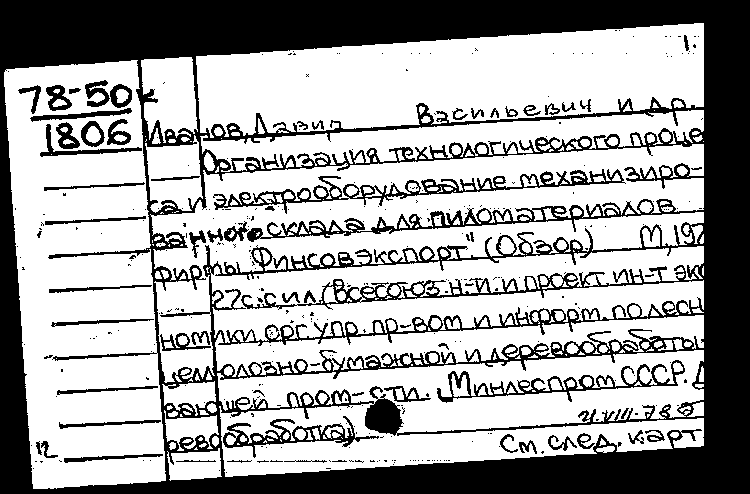 1.
78-50к
1806
Иванов, Давид Васильевич и др.
Организация технологического проце
са и электрооборудование механизиро-
ванного склада для пиломатериалов
фирмы „Финсовэкспорт". (Обзор) М, 197
27с. с ил. (Всесоюз. н-и. и проект. ин-т эко
номики, орг. упр. пр-вом и информ. по лесн
целлюлозно-бумажной и деревообрабаты-
вающей пром-сти. Минлеспром СССР. Д
ревообработка).
См. след. карт
12